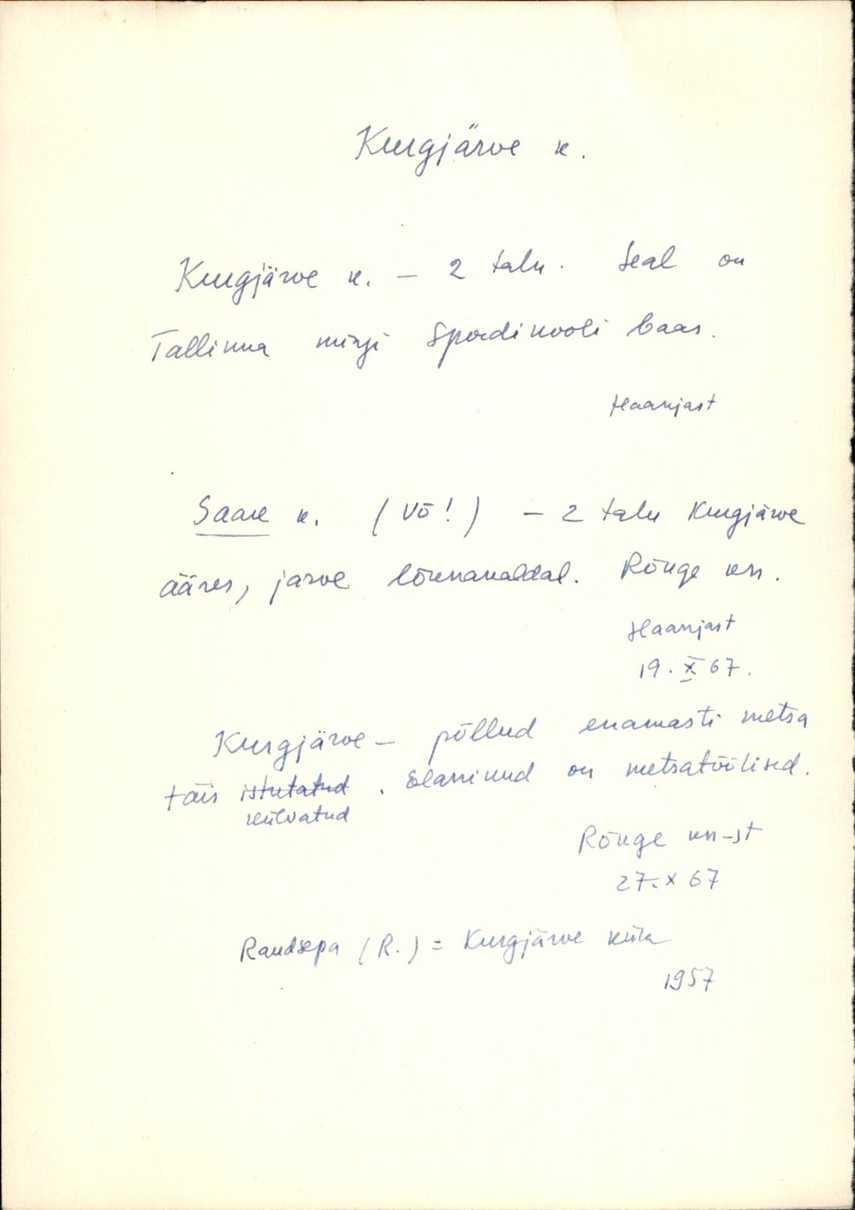 Kurgjärve k.
Kurgjärve k. – 2 talu. Seal on
Tallinna mingi Spordikooli baas.
Haanjast
Saare k. (Võ!) – 2 talu Kurgjärve
ääres, järve lõunakaldal. Rõuge kn.
Haanjast
19. X 67.
Kurgjärve – põllud enamasti metsa
täis istutatud . Elanikud on metsatöölised.
külvatud
Rõuge kn-st
27. X 67
Raudsepa (R.) = Kurgjärve küla
1957